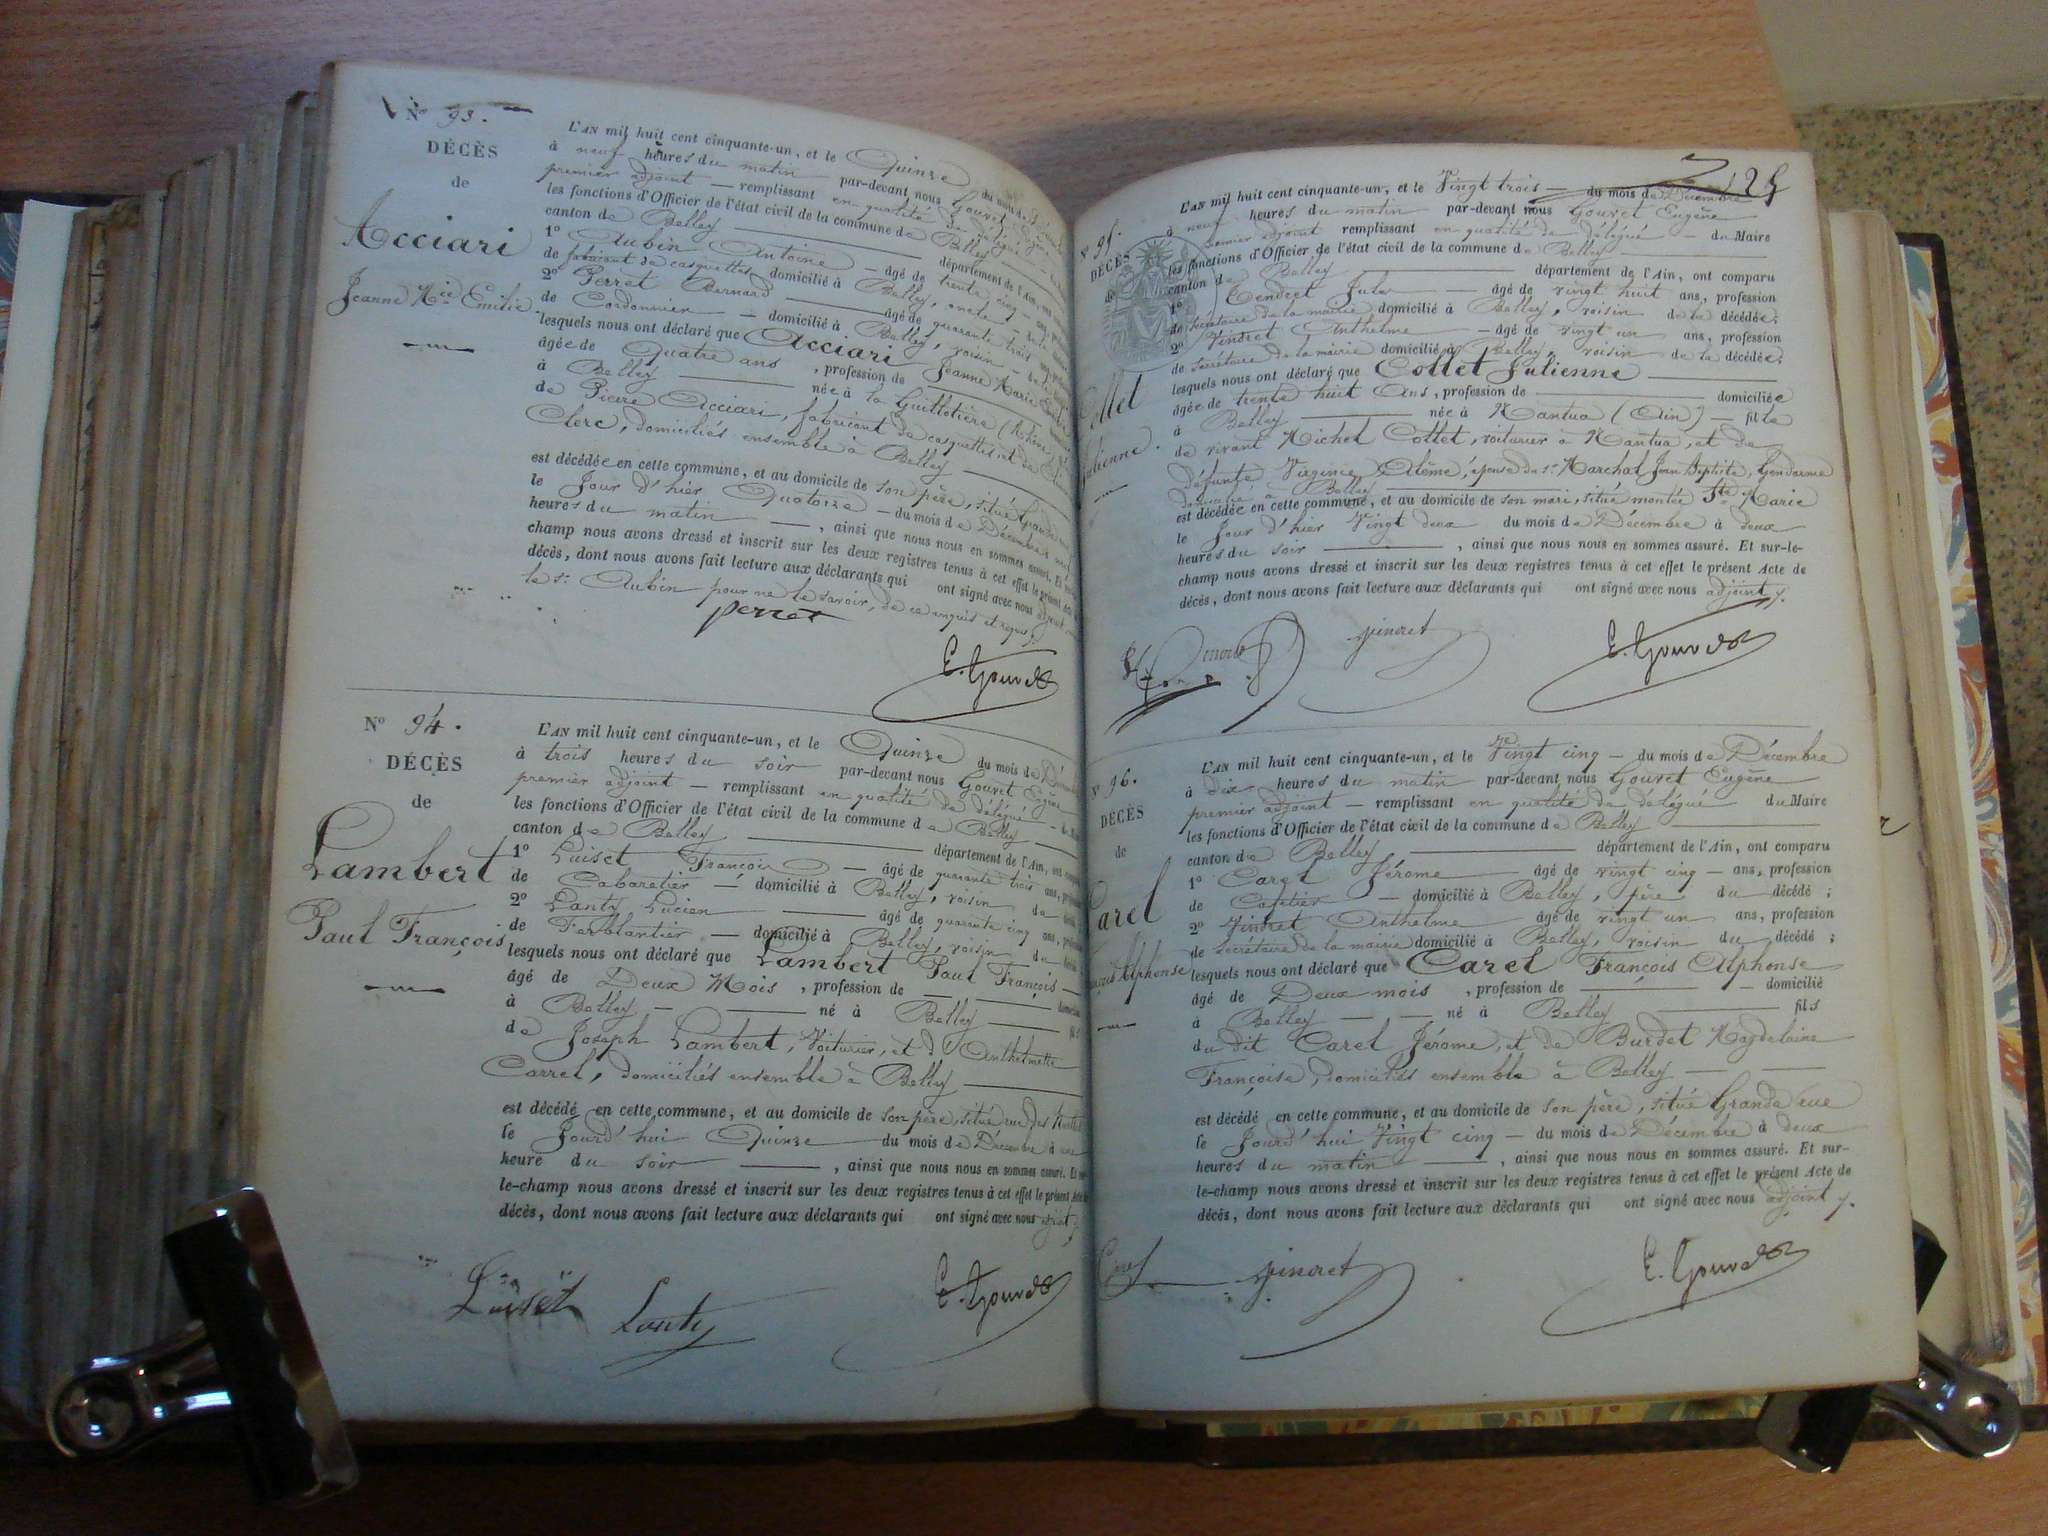 N° 93.
DÉCÈS
de
Acciari
Jeanne Mie Emilie.
L'AN mil huit cent cinquante-un, et le Quinze du mois de
à neuf heures du matin par-devant nous Gouvet
premier adjoint — remplissant en qualité de délégué
les fonctions d'Officier de l'état civil de la commune de Belley
canton de Belley département de l'Ain,
1° Aubin Antoine — âgé de trente cinq
de fabricant de casquettes domicilié à Belley, oncle
2° Perret Bernard âgé de quarante trois
de Cordonnier — domicilié à Belley, voisin
lesquels nous ont déclaré que Acciari Jeanne Marie
âgée de Quatre ans , profession de
à Belley née à la Guillotière (Rhône)
de Pierre Acciari, fabricant de casquettes, et de
Clerc, domiciliés ensemble à Belley
est décédée en cette commune, et au domicile de son père, situé Grande
le Jour d'hier Quatorze — du mois de Décembre
heures du matin , ainsi que nous nous en sommes assuré. Et
champ nous avons dressé et inscrit sur les deux registres tenus à cet effet le présent
décès, dont nous avons fait lecture aux déclarants qui ont signé avec nous adjoint
le sr. Aubin pour ne le savoir, de ce enquis et requis
Perret
E. Gouvet
N° 94.
DÉCÈS
de
Lambert
Paul François
L'AN mil huit cent cinquante-un, et le Quinze du mois de
à trois heures du soir par-devant nous Gouvet Eugène
premier adjoint — remplissant en qualité de délégué
les fonctions d'Officier de l'état civil de la commune de Belley
canton de Belley département de l'Ain, ont comparu
1° Luiset François — âgé de quarante trois ans,
de Cabaretier — domicilié à Belley, voisin du
2° Lanty Lucien âgé de quarante cinq ans,
de Ferblantier — domicilié à Belley, voisin du
lesquels nous ont déclaré que Lambert Paul François
âgé de Deux Mois , profession de — domicilié
à Belley — né à Belley fils
de Joseph Lambert, Voiturier, et d'Anthelmette
Carrel, domiciliés ensemble à Belley
est décédé en cette commune, et au domicile de son père, situé rue des
le Jourd'hui Quinze du mois de Décembre à une
heure du soir , ainsi que nous nous en sommes assuré. Et sur
le-champ nous avons dressé et inscrit sur les deux registres tenus à cet effet le présent Acte de
décès, dont nous avons fait lecture aux déclarants qui ont signé avec nous adjoint
Luiset
Lanty
E. Gouvet
N° 95.
DÉCÈS
de
Collet
Julienne.
L'AN mil huit cent cinquante-un, et le Vingt trois — du mois de Décembre
à neuf heures du matin par-devant nous Gouvet Eugène
premier adjoint remplissant en qualité de délégué — du Maire
les fonctions d'Officier de l'état civil de la commune de Belley
canton de Belley département de l'Ain, ont comparu
1° Tendret Jules — âgé de vingt huit ans, profession
de secrétaire de la mairie domicilié à Belley, voisin de la décédée;
2° Vindret Anthelme — âgé de vingt un ans, profession
de Secrétaire de la mairie domicilié à Belley, voisin de la décédée;
lesquels nous ont déclaré que Collet Julienne
âgée de trente huit Ans, profession de domiciliée
à Belley née à Nantua (Ain) — fille
de vivant Michel Collet, voiturier à Nantua, et de
défunte Virginie, épouse du sr. Marchal Jean Baptiste, Gendarme
à Belley
est décédée en cette commune, et au domicile de son mari, situé montée Ste Marie
le Jour d'hier Vingt deux du mois de Décembre à deux
heures du soir , ainsi que nous nous en sommes assuré. Et sur-le-
champ nous avons dressé et inscrit sur les deux registres tenus à cet effet le présent Acte de
décès, dont nous avons fait lecture aux déclarants qui ont signé avec nous adjoint.
Vindret
E. Gouvet
N° 96.
DÉCÈS
de
Carel
François Alphonse
L'AN mil huit cent cinquante-un, et le Vingt cinq — du mois de Décembre
à dix heures du matin par-devant nous Gouvet Eugène
premier adjoint — remplissant en qualité de délégué du Maire
les fonctions d'Officier de l'état civil de la commune de Belley
canton de Belley département de l'Ain, ont comparu
1° Carel Jérome âgé de vingt cinq — ans, profession
de Cafetier — domicilié à Belley, père du décédé ;
2° Vindret Anthelme âgé de vingt un ans, profession
de Secrétaire de la mairie domicilié à Belley, voisin du décédé ;
lesquels nous ont déclaré que Carel François Alphonse
âgé de Deux mois , profession de — domicilié
à Belley — né à Belley fils
du dit Carel Jérome, et de Burdet Magdelaine
Françoise, domiciliés ensemble à Belley
est décédé en cette commune, et au domicile de son père, situé Grande rue
le Jourd'hui Vingt cinq — du mois de Décembre à deux
heures du matin , ainsi que nous nous en sommes assuré. Et sur-
le-champ nous avons dressé et inscrit sur les deux registres tenus à cet effet le présent Acte de
décès, dont nous avons fait lecture aux déclarants qui ont signé avec nous adjoint.
Carel
Vindret
E. Gouvet